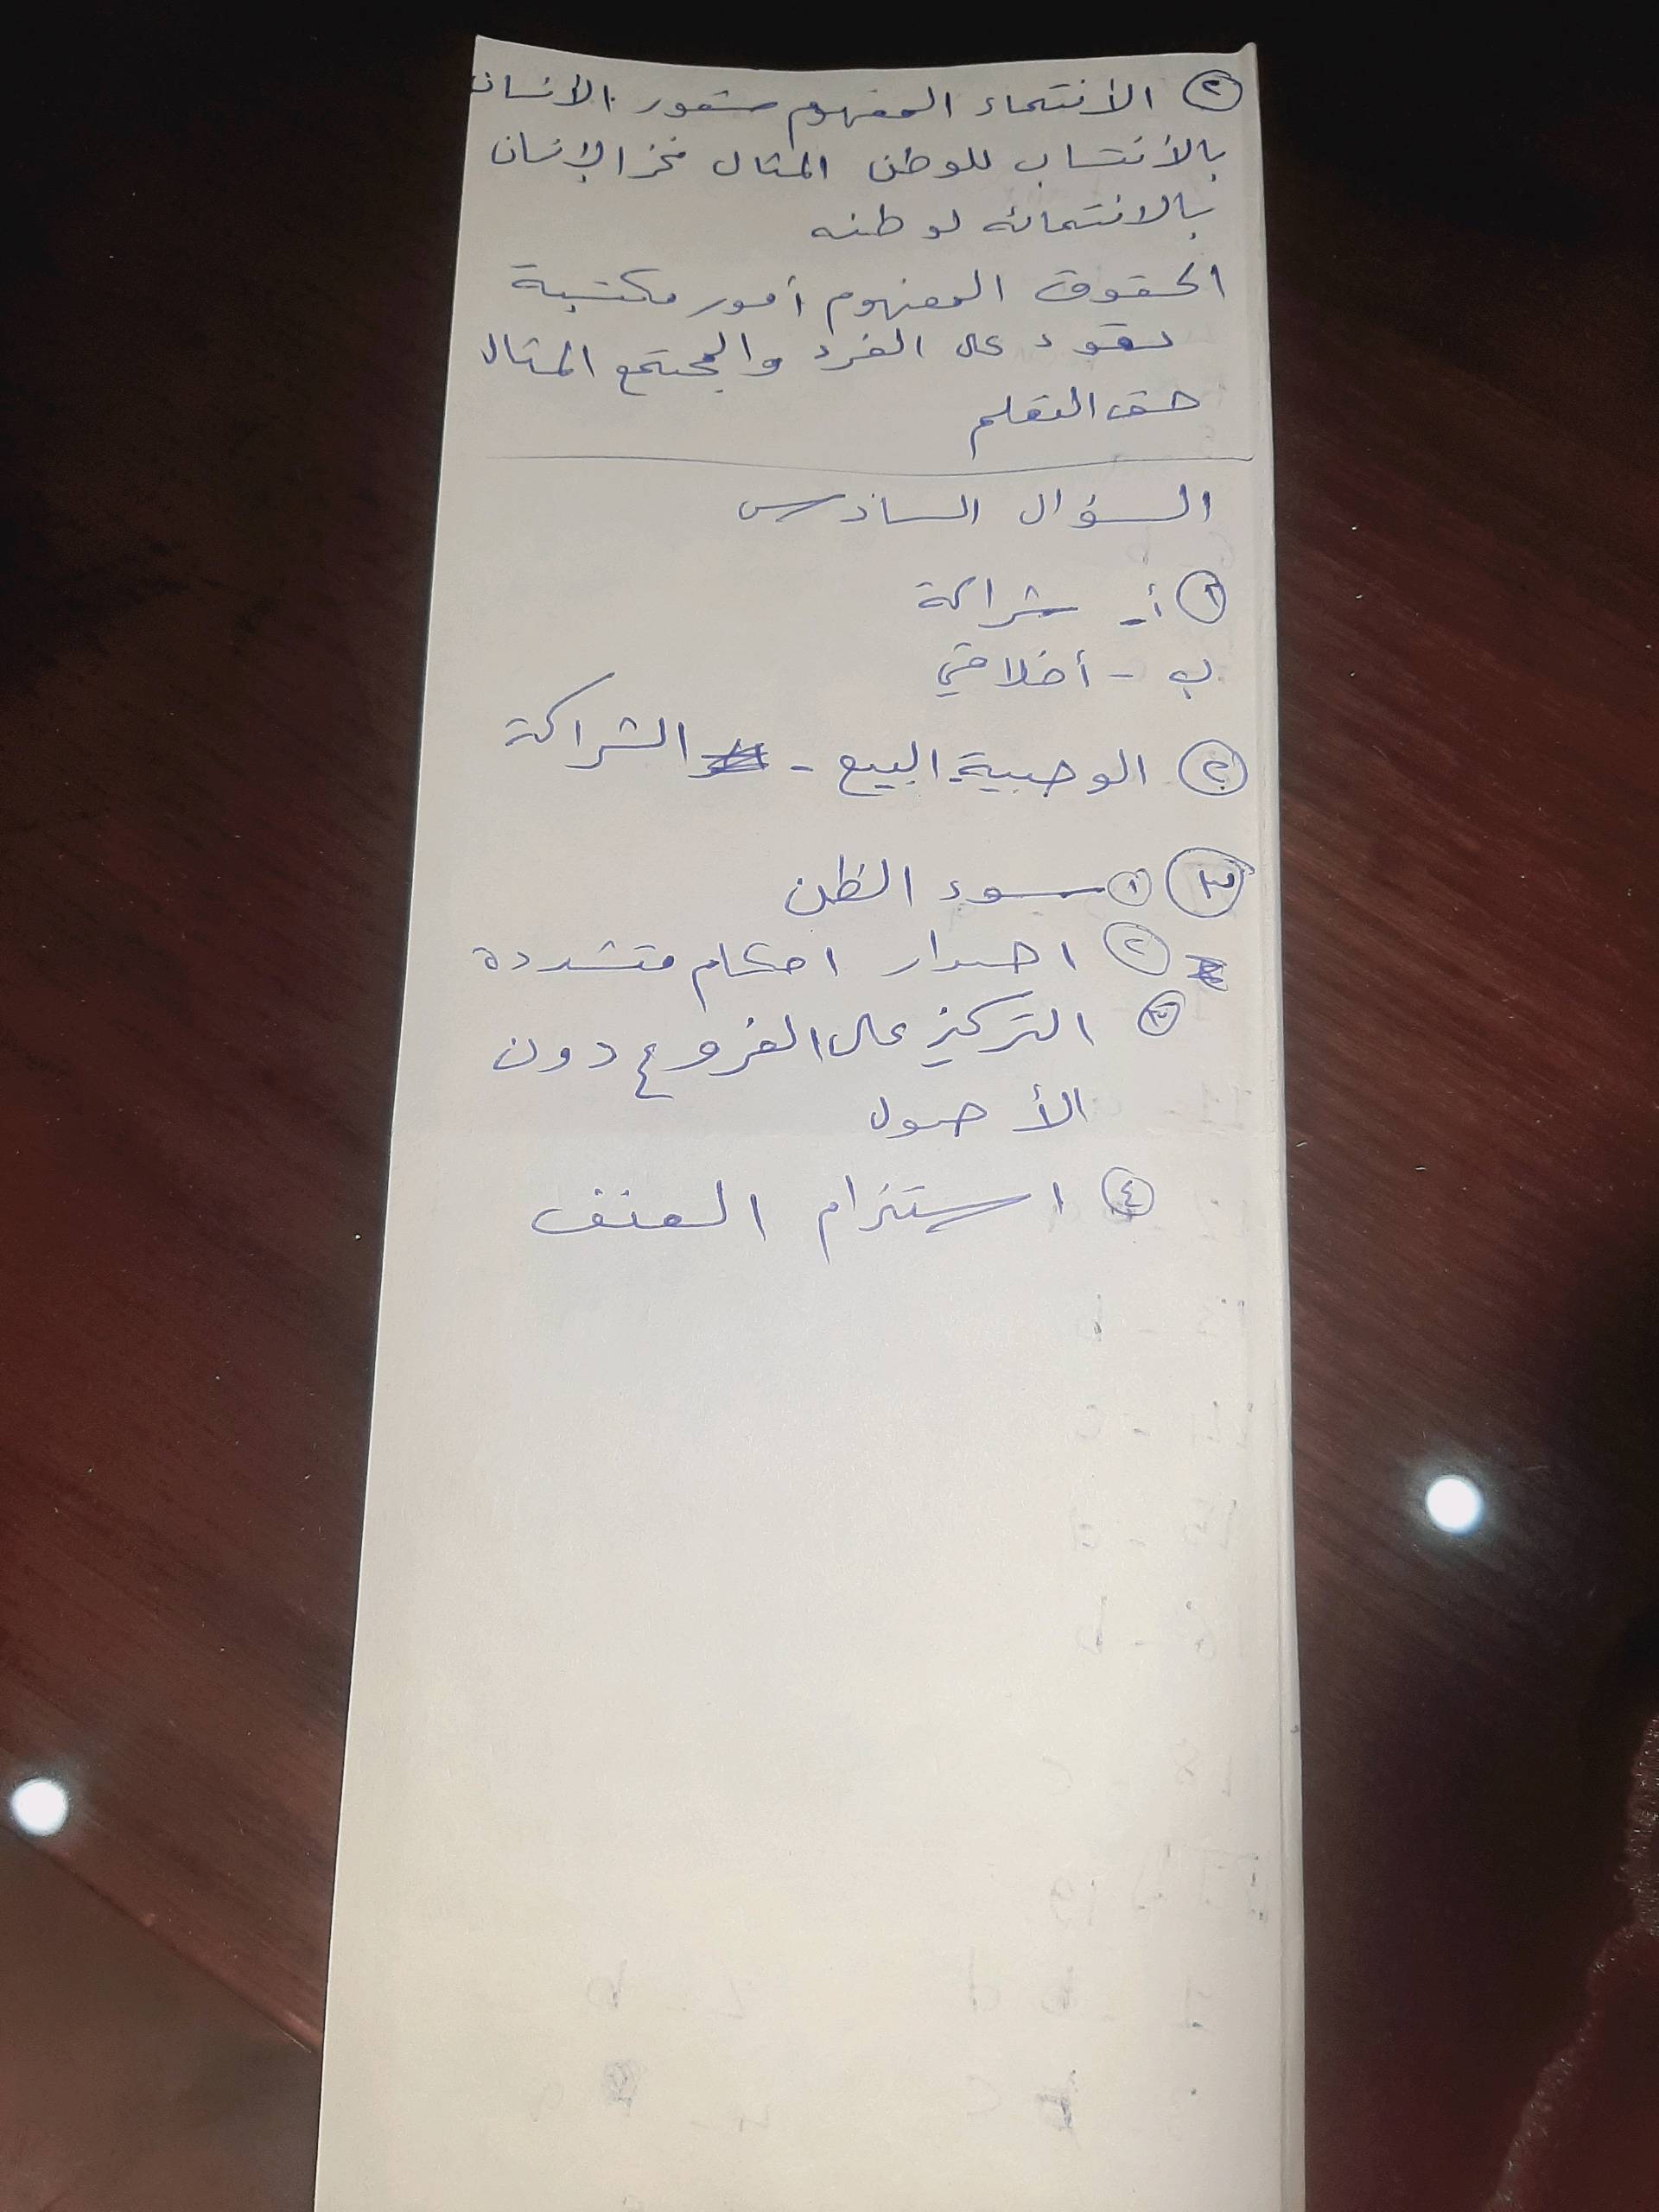 ٢ الأنتماء المفهوم شعور الأنسان
بالأنتساب للوطن المثال فخر الإنسان
بالانتمائه لوطنه
الحقوق المفهوم أمور مكتسبة
تعود على الفرد والمجتمع المثال
حق التعلم
السؤال السادس
١ أ- شراكة
ب - أخلاقي
٢ الوصية - البيع - الشراكة
٣ ١ سوء الظن
٢ اصدار احكام متشددة
٣ التركيز على الفروع دون
الأصول
٤ استزام العنف